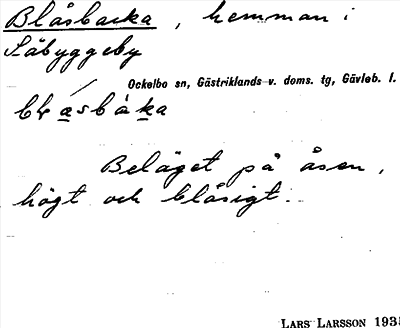 Blåsbacka, hemman i
Säbyggeby
Ockelbo sn, Gästriklands v. doms. tg, Gävleb. l.
Beläget på åsen,
högt och blåsigt.
LARS LARSSON 193